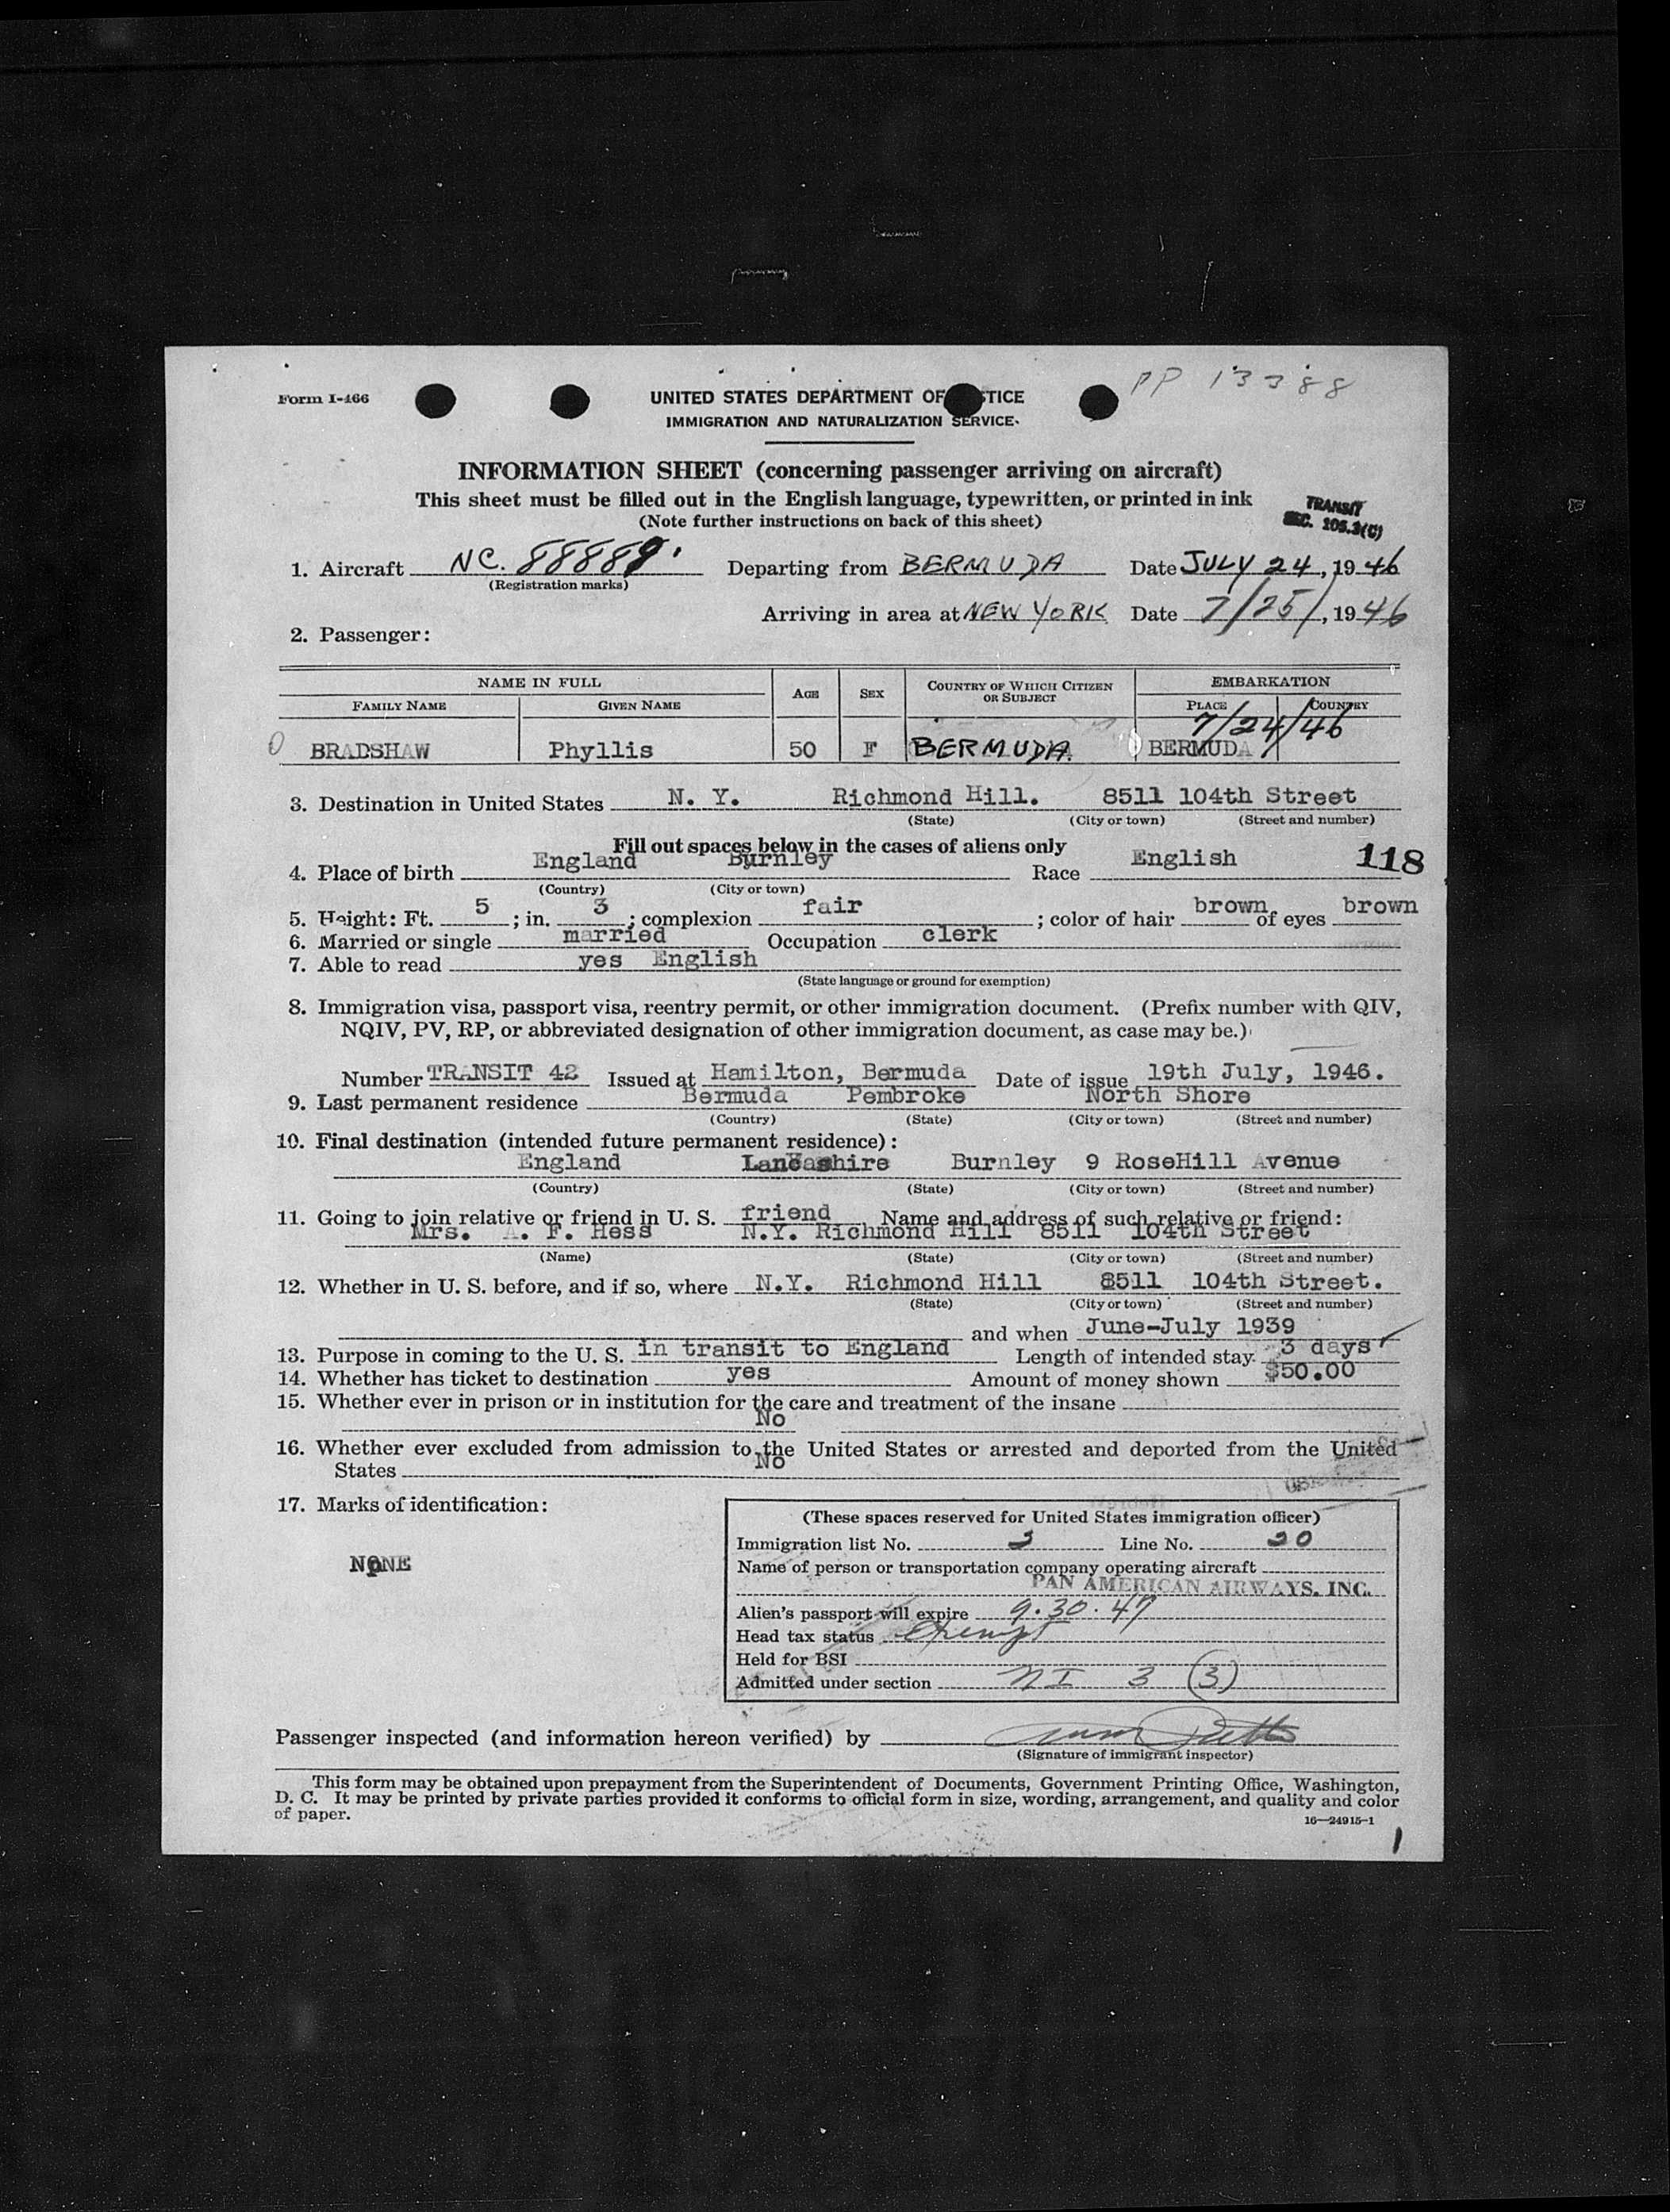 PP 13388
Form I-466
UNITED STATES DEPARTMENT OF JUSTICE
IMMIGRATION AND NATURALIZATION SERVICE
INFORMATION SHEET (concerning passenger arriving on aircraft)
This sheet must be filled out in the English language, typewritten, or printed in ink
(Note further instructions on back of this sheet)
TRANSIT
SEC. 105.3(C)
1. Aircraft NC. 88889. Departing from BERMUDA Date JULY 24, 1946
(Registration marks)
Arriving in area at NEW YORK Date 7/25/, 1946
2. Passenger:
NAME IN FULL AGE SEX COUNTRY OF WHICH CITIZEN OR SUBJECT EMBARKATION
FAMILY NAME GIVEN NAME PLACE COUNTRY
7/24/46
0 BRADSHAW Phyllis 50 F BERMUDA BERMUDA
3. Destination in United States N. Y. Richmond Hill. 8511 104th Street
(State) (City or town) (Street and number)
Fill out spaces below in the cases of aliens only
4. Place of birth England Burnley Race English 118
(Country) (City or town)
5. Height: Ft. 5; in. 3; complexion fair; color of hair brown of eyes brown
6. Married or single married Occupation clerk
7. Able to read yes English
(State language or ground for exemption)
8. Immigration visa, passport visa, reentry permit, or other immigration document. (Prefix number with QIV,
NQIV, PV, RP, or abbreviated designation of other immigration document, as case may be.)
Number TRANSIT 42 Issued at Hamilton, Bermuda Date of issue 19th July, 1946.
9. Last permanent residence Bermuda Pembroke North Shore
(Country) (State) (City or town) (Street and number)
10. Final destination (intended future permanent residence):
England Lancashire Burnley 9 RoseHill Avenue
(Country) (State) (City or town) (Street and number)
11. Going to join relative or friend in U. S. friend Name and address of such relative or friend:
Mrs. A. F. Hess N.Y. Richmond Hill 8511 104th Street
(Name) (State) (City or town) (Street and number)
12. Whether in U. S. before, and if so, where N.Y. Richmond Hill 8511 104th Street.
(State) (City or town) (Street and number)
and when June-July 1939
13. Purpose in coming to the U. S. in transit to England Length of intended stay 3 days
14. Whether has ticket to destination yes Amount of money shown $50.00
15. Whether ever in prison or in institution for the care and treatment of the insane
No
16. Whether ever excluded from admission to the United States or arrested and deported from the United
States No
17. Marks of identification:
NONE
(These spaces reserved for United States immigration officer)
Immigration list No. 3 Line No. 20
Name of person or transportation company operating aircraft
PAN AMERICAN AIRWAYS. INC.
Alien's passport will expire 9.30.47
Head tax status Exempt
Held for BSI
Admitted under section NI 3 (3)
Passenger inspected (and information hereon verified) by
(Signature of immigrant inspector)
This form may be obtained upon prepayment from the Superintendent of Documents, Government Printing Office, Washington,
D. C. It may be printed by private parties provided it conforms to official form in size, wording, arrangement, and quality and color
of paper.
16—24915-1
1